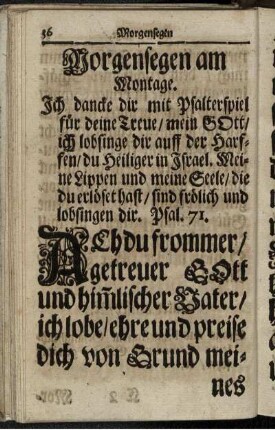 36 Morgensegen
Morgensegen am
Montage.
Ich dancke dir mit Psalterspiel
für deine Treue / mein GOtt /
ich lobsinge dir auff der Harf-
fen / du Heiliger in Israel. Mei-
ne Lippen und meine Seele / die
du erlöset hast / sind frölich und
lobsingen dir. Psal. 71.
ACh du frommer /
getreuer GOtt
und him̃lischer Vater /
ich lobe / ehre und preise
dich von Grund mei-
nes